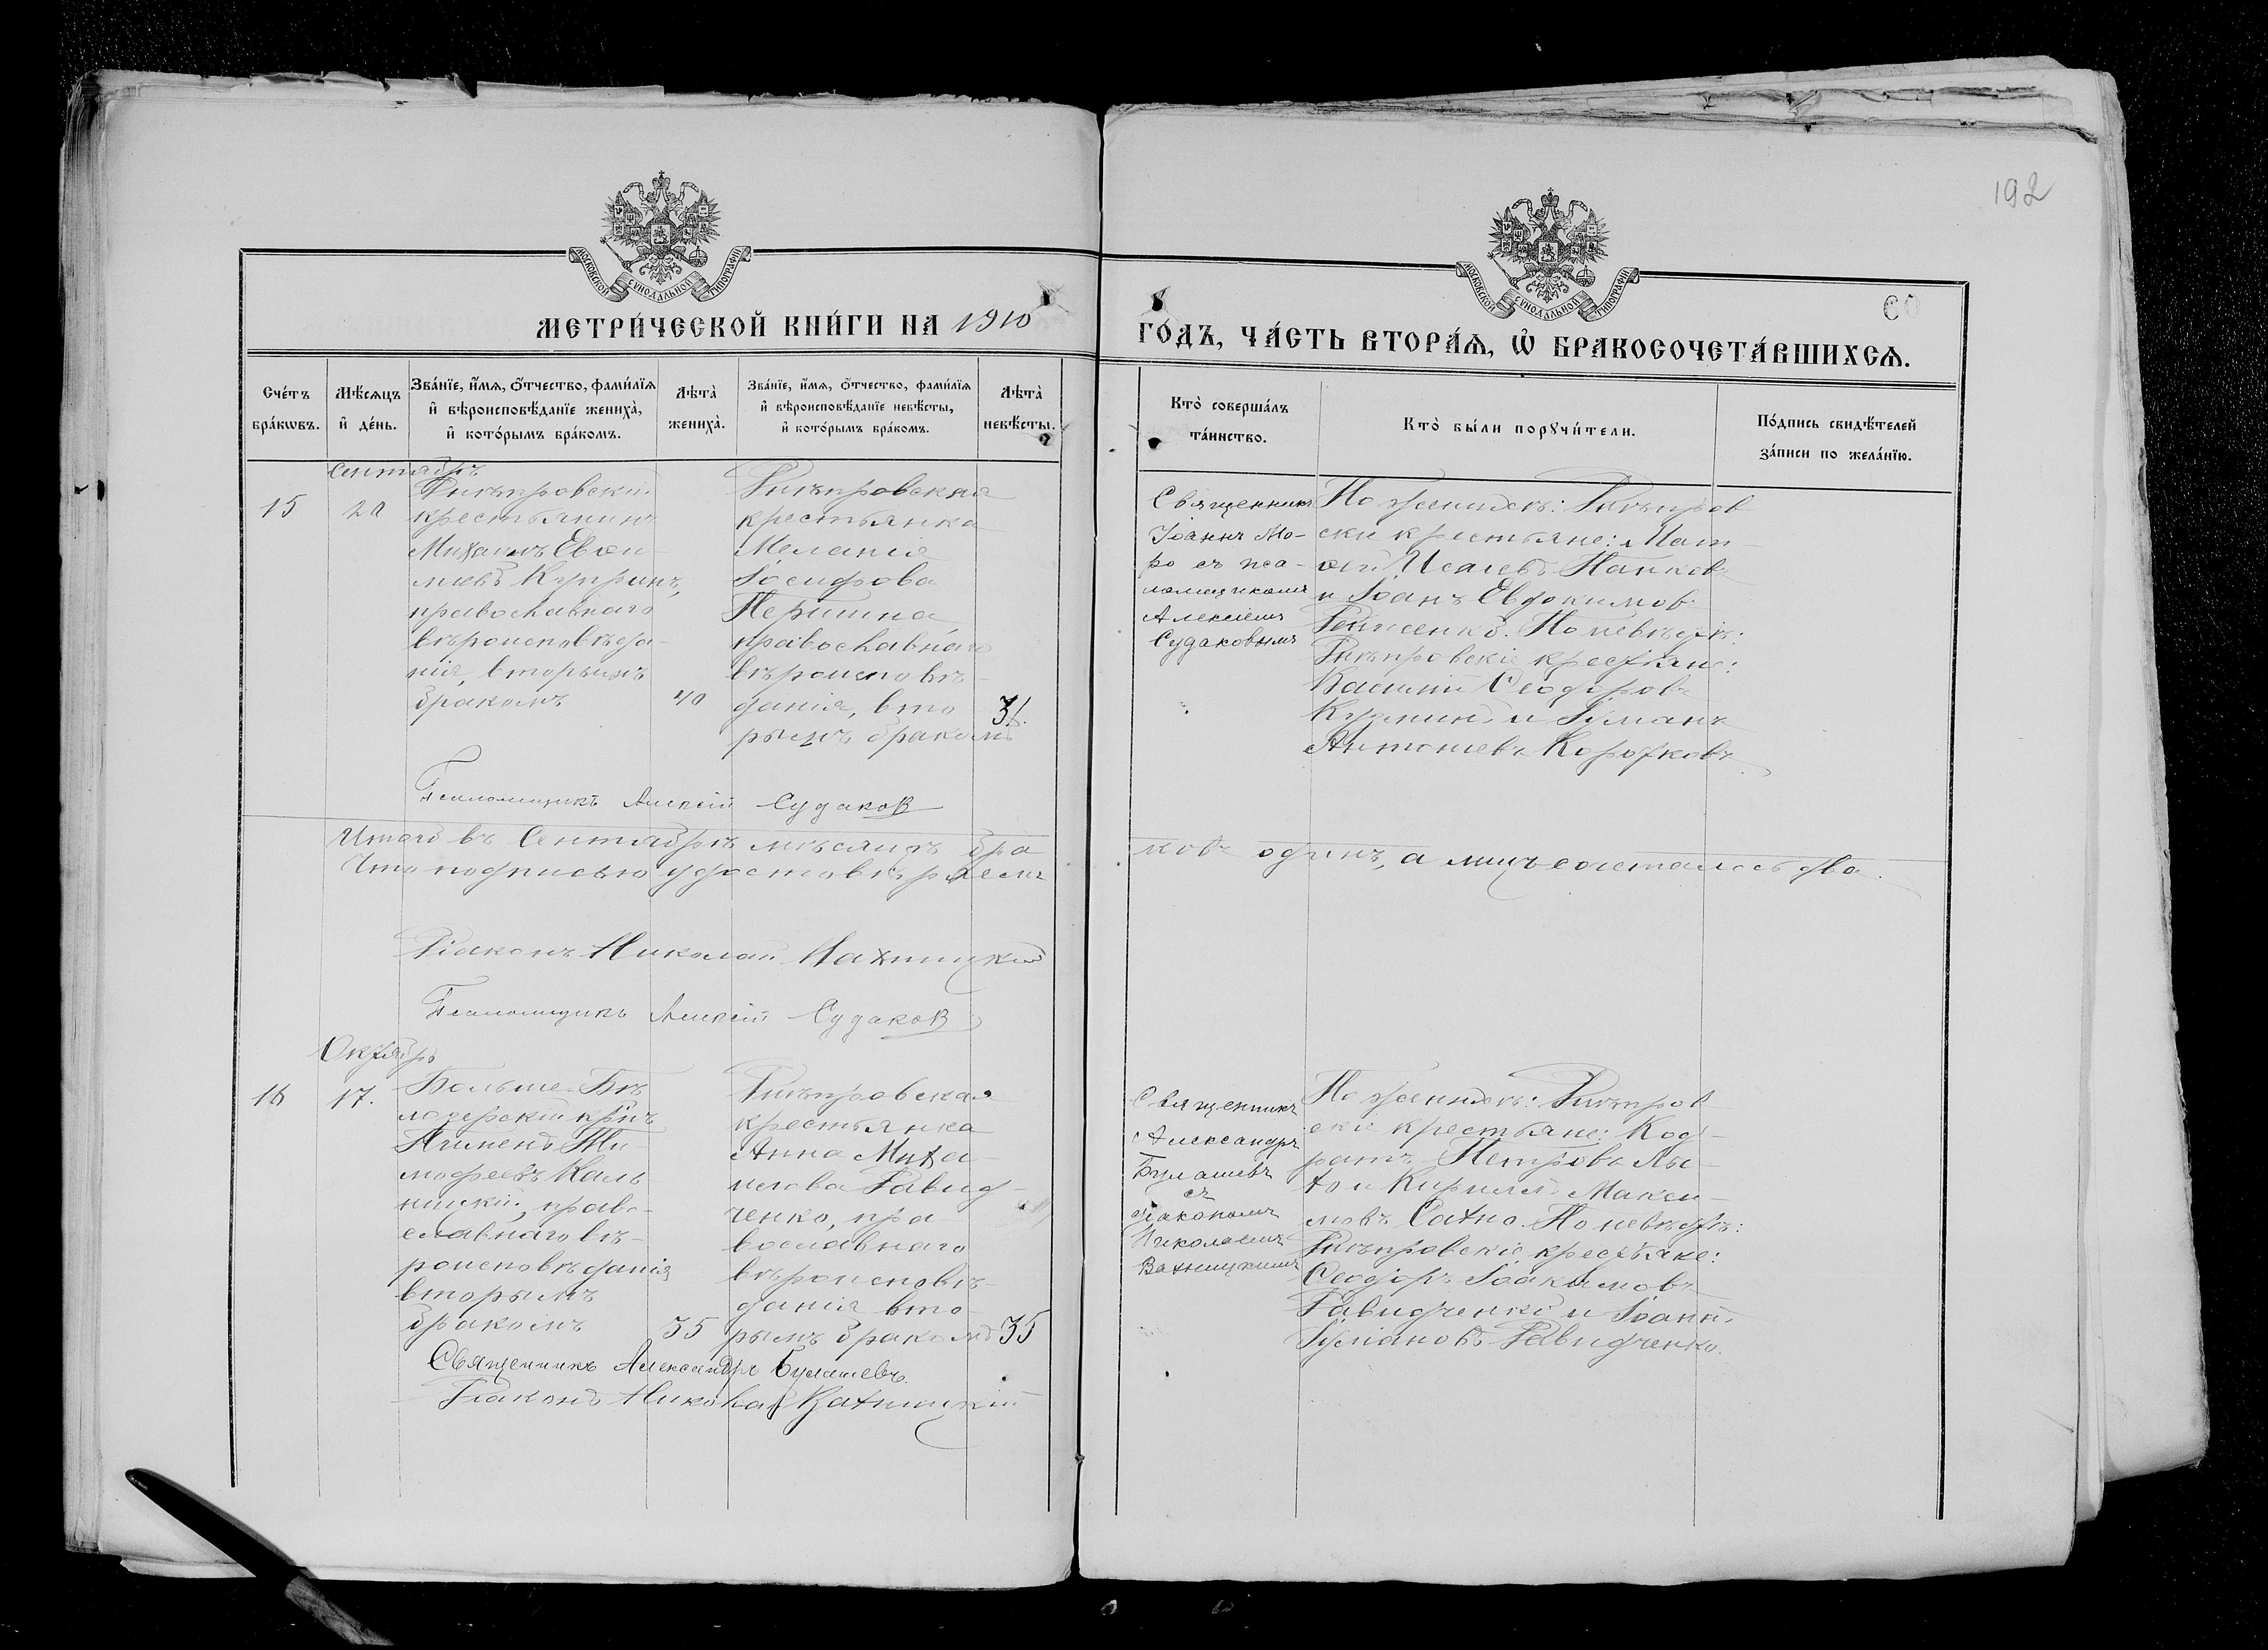 192
МОСКОВСКОЙ СѴНОДАЛЬНОЙ ТИПОГРАФІИ
МОСКОВСКОЙ СѴНОДАЛЬНОЙ ТИПОГРАФІИ
60
МЕТРИ́ЧЕСКОЙ КНИ́ГИ НА 1910
ГО́ДЪ, ЧА́СТЬ ВТОРА́Ѧ, Ѡ҆ БРАКОСОЧЕТА́ВШИХСѦ.
Сче́тъ
бра́кωвъ.
Мѣ́сѧцъ
и҆ де́нь.
Зва́нїе, и҆́мѧ, ѻ҆́тчество, фами́лїѧ
и҆ вѣроисповѣ́данїе жениха̀,
и҆ кото́рымъ бра́комъ.
Лѣ́та̀
жениха̀.
Зва́нїе, и҆́мѧ, ѻ҆́тчество, фами́лїѧ
и҆ вѣроисповѣ́данїе невѣ́сты,
и҆ кото́рымъ бра́комъ.
Лѣ́та̀
невѣ́сты.
Кто̀ соверша́лъ
та́инство.
Кто̀ бы́ли порꙋчи́тели.
По́дпись свидѣ́телей
за́писи по жела́нїю.
Сентябрь
15
Днѣпровскій
крестьянинъ
Михаилъ Евѳи-
міевъ Купринъ,
православнаго
вѣроисповѣда-
нія, вторымъ
бракомъ
40
Днѣпровская
крестьянка
Меланія
Іосифова
Першина
православнаго
вѣроисповѣ-
данія, вто-
рымъ бракомъ
31.
Священникъ
Іоаннъ Мо-
ро съ пса-
ломщикомъ
Алексіемъ
Судаковымъ
По женихѣ: Днѣпров
скіе крестьяне: Мат-
ѳей Исаевъ
и Іоанъ Евдокимовъ
По невѣстѣ:
Днѣпровскіе крестьяне:
Василій Ѳеодоровъ
и
Антоніевъ Коротковъ
Псаломщикъ Алексій Судаковъ
Итого въ Сентябрѣ мѣсяцѣ бра
ковъ одинъ, а лицъ сочеталось два.
Что подписью удостовѣряемъ
Діаконъ Николай Вахницкій
Псаломщикъ Алексій Судаковъ
Октябрь
16
17.
Больше-Бѣ
лозерскій кр-нъ
Ти-
моѳеевъ Каль
ницкій, право-
славнаго вѣ-
роисповѣданія
вторымъ
бракомъ
35
Днѣпровская
крестьянка
Анна Миха-
илова Давид-
ченко, пра-
вославнаго
вѣроисповѣ-
данія вто-
рымъ бракомъ
35
Священникъ
Александръ
Булашевъ
съ
діакономъ
Николаемъ
Вахницкимъ
По женихѣ: Днѣпров
скіе крестьяне: Код-
ратъ Петровъ
и Кириллъ Макси-
мовъ Сахно. По невѣстѣ:
Днѣпровскіе крестьяне:
Ѳеодоръ Іоакимовъ
Давидченко и Іоаннъ
Давидченко.
Священникъ Александръ Булашевъ.
Діаконъ Николай Вахницкій